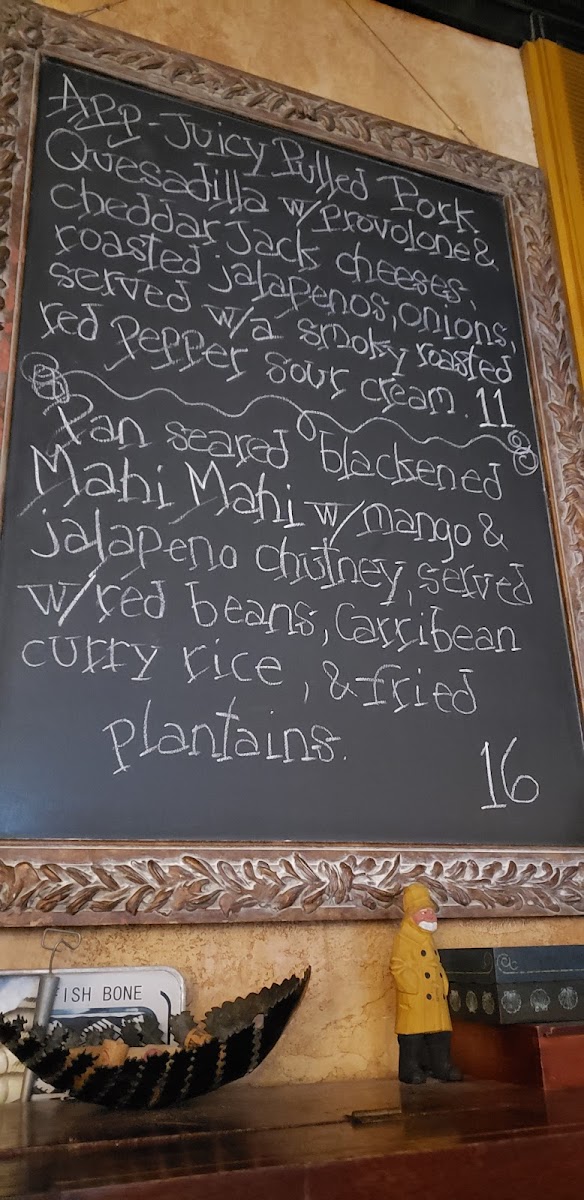 App - Juicy Pulled Pork
Quesadilla w/ Provolone &
cheddar Jack cheeses,
roasted jalapenos, onions,
served w/a smoky roasted
red pepper sour cream. 11
Pan seared blackened
Mahi Mahi w/ mango &
jalapeno chutney, served
w/red beans, Carribean
curry rice, & fried
plantains.
16
FISH BONE